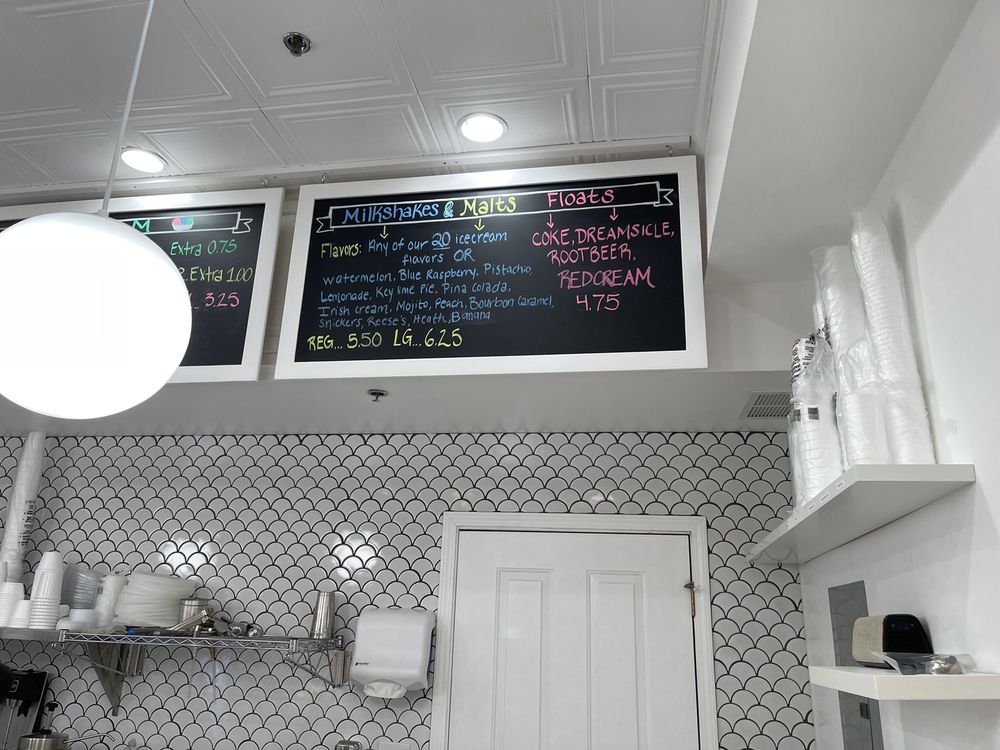 M
Extra 0.75
Extra 1.00
3.25
Milkshakes & Malts
Flavors: Any of our 20 icecream
flavors OR
Watermelon, Blue Raspberry, Pistachio,
Lemonade, Key lime Pie, Pina Colada,
Irish cream, Mojito, Peach, Bourbon Caramel,
Snickers, Reese's, Heath, Banana
REG... 5.50 LG... 6.25
Floats
COKE, DREAMSICLE,
ROOTBEER,
REDCREAM
4.75